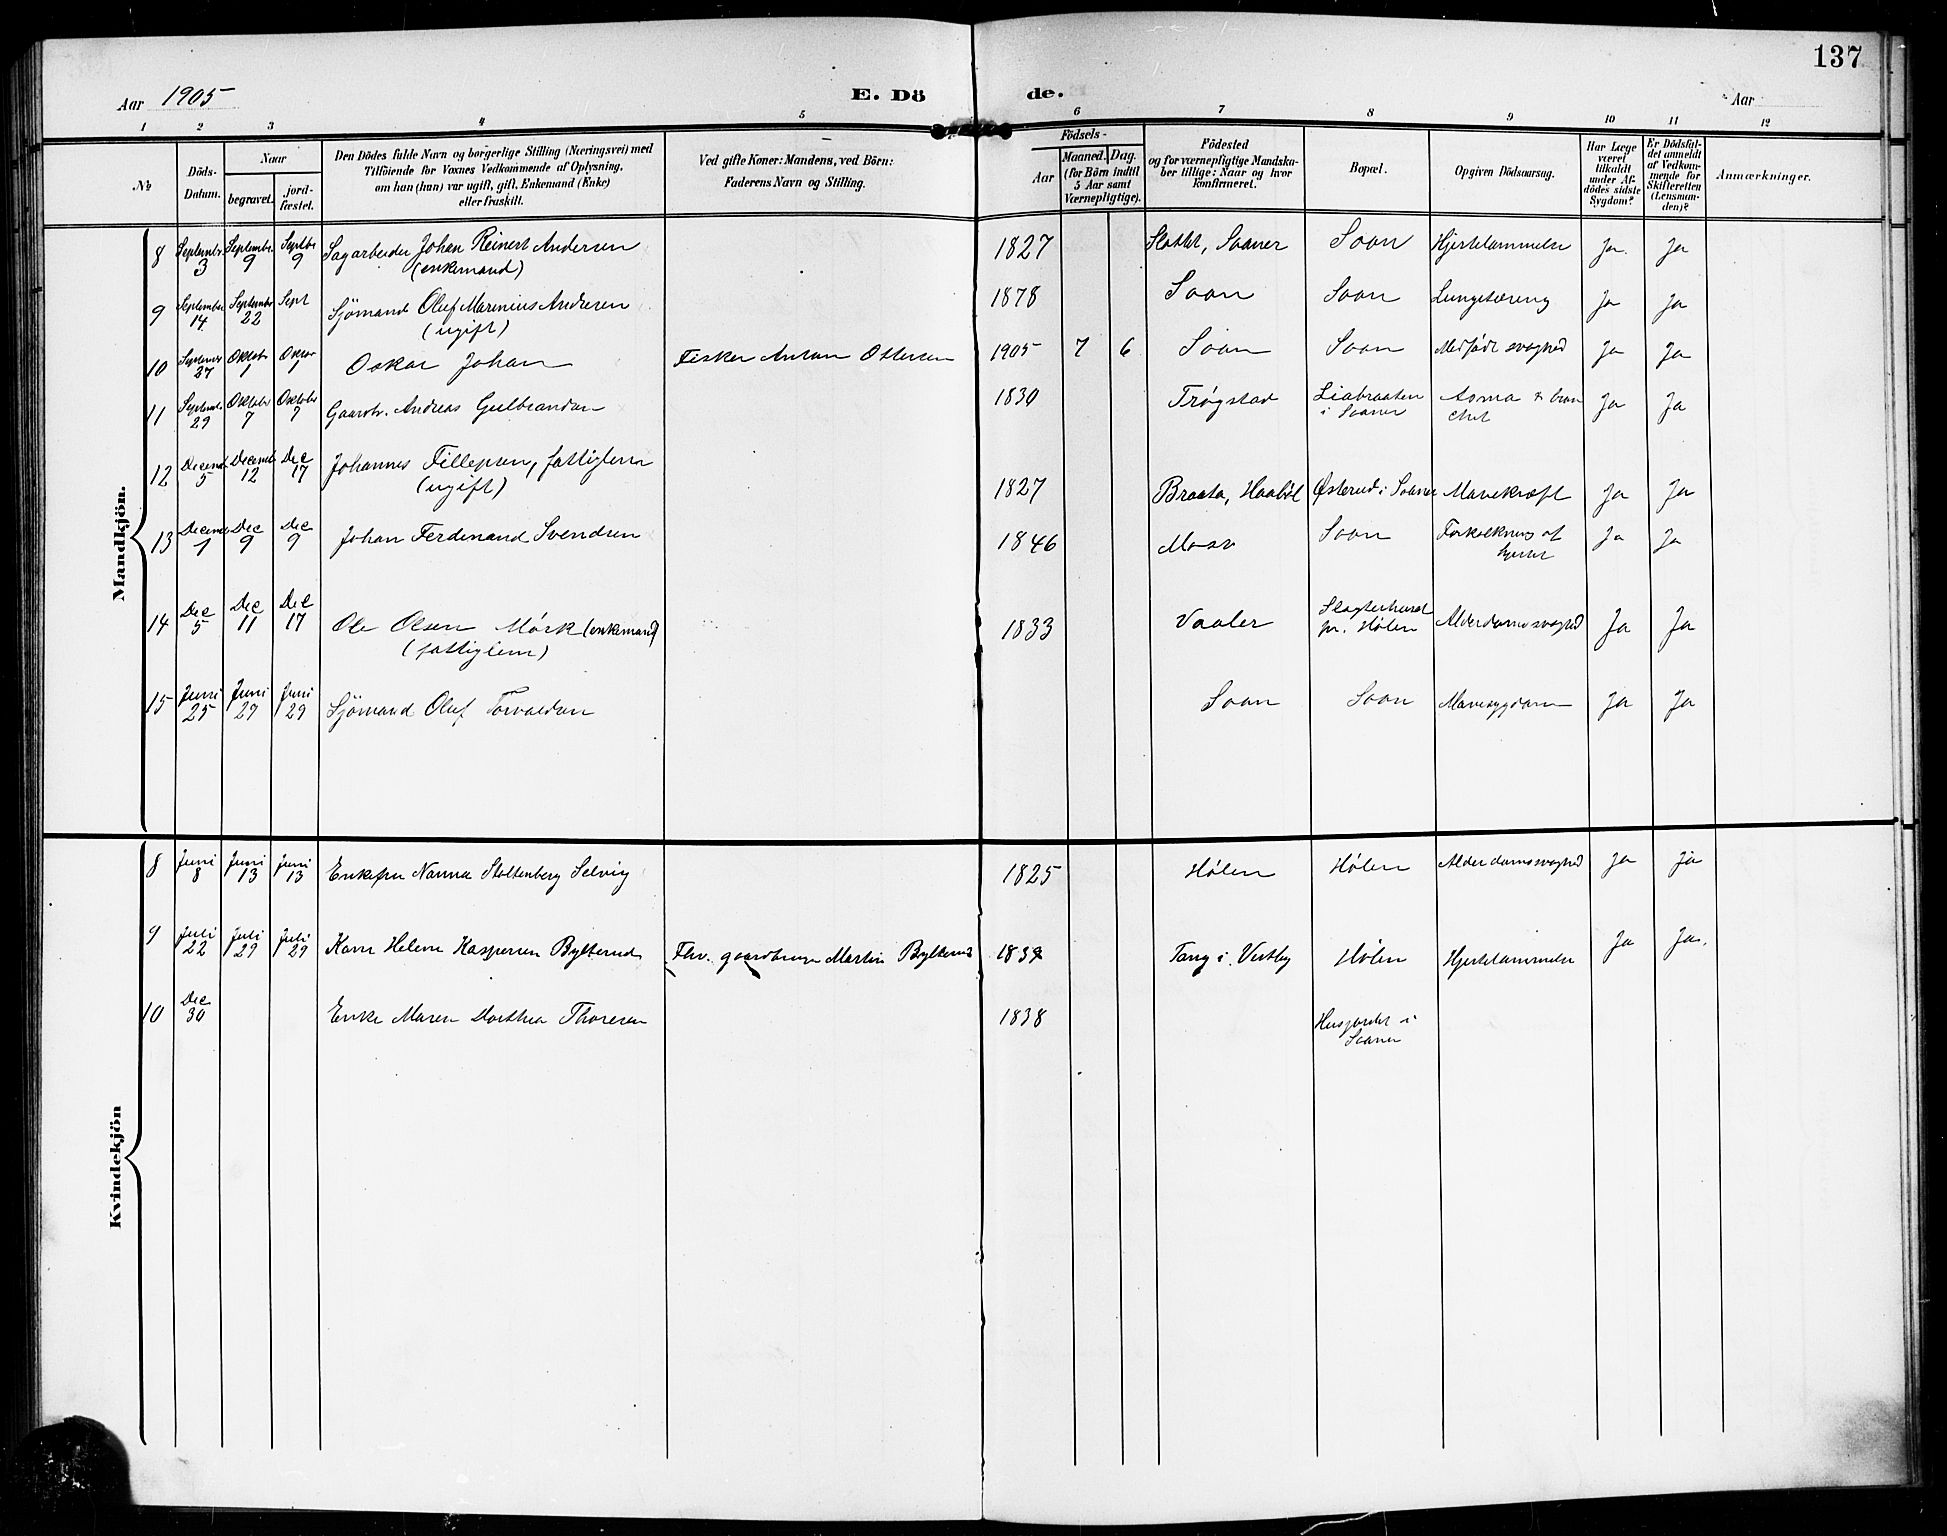 137
Aar 1905 E. Dö de. Aar
1 2 3 4 5 6 7 8 9 10 11 12
№
Döds-Datum.
Naar
begravet.
jord-fæstet.
Den Dödes fulde Navn og borgerlige Stilling (Næringsvei) med
Tilföiende for Voxnes Vedkommende af Oplysning,
om han (hun) var ugift, gift, Enkemand (Enke)
eller fraskilt.
Ved gifte Koner: Mandens, ved Börn:
Faderens Navn og Stilling.
Födsels-
Aar
Maaned. Dag.
(for Börn indtil
5 Aar samt
Værnepligtige).
Födested
og for værnepligtige Mandska-
ber tillige: Naar og hvor
konfirmeret.
Bopæl.
Opgiven Dödsaarsag.
Har Læge
været
tilkaldt
under Af-
dödes sidste
Sygdom?
Er Dödsfal-
det anmeldt
af Vedkom-
mende for
Skifteretten
(Lensman-
den)?
Anmærkninger.
Mandkjön.
8 Septembr. 3 Septembr. 9 Septbr 9 Sagarbeider Johan Reinert Andersen 1827 Slottet, Saaner Soon Hjertelammelse Ja. Ja
(enkemand)
9 Septembr 14 Septembr 22 Sept Sjömand Oluf Marinius Andresen 1878 Soon Soon Lungetæring Ja Ja
(ugift)
10 27 Oktobr 1 1 Oskar Johan Fisker Anton Ottersen 1905 7 6 Soon Soon Medfødt svaghed Ja Ja
11 29 Oktobr 7 Oktobr 7 Gaardbr. Andreas Gulbrandsen 1830 Trøgstad Liabraaten Asma & bron Ja Ja
i Saaner chit
12 Decemb. 5 Decemb 12 Dec 17 Johannes Fillepsen, fattiglem 1827 Braata, Haabøl Østerud i Saaner Mavekræft Ja Ja
(ugift)
13 Decemb 1 Dec 9 Dec 9 Johan Ferdinand Svendsen 1846 Moss Soon Forkalkning af Ja Ja
hjertet
14 Dec 5 Dec 11 Dec 17 Ole Olsen Mörk (enkemand) 1833 Vaaler Alderdomssvaghed Ja Ja
(fattiglem) pr. Hölen
15 Juni 25 Juni 29 Juni 29 Sjömand Oluf Torvaldsen Soon Soon Mavesygdom Ja Ja
Kvindekjön
8 Juni 8 Juni 13 Juni 13 Enkefru Nanna Stoltenberg Selvig 1825 Hölen Hölen Alderdomssvaghed Ja ja
9 Juli 22 Juli 29 Juli 29 Karn Helene Kaspersen Bylterud Fhv. gaardbruger Martin Bylterud 1839 Tang i Vestby Hölen Hjertelammelse Ja Ja.
10 Dec 30 Enke Maren Dorthea Thoresen 1838 Husjordet i
Saaner